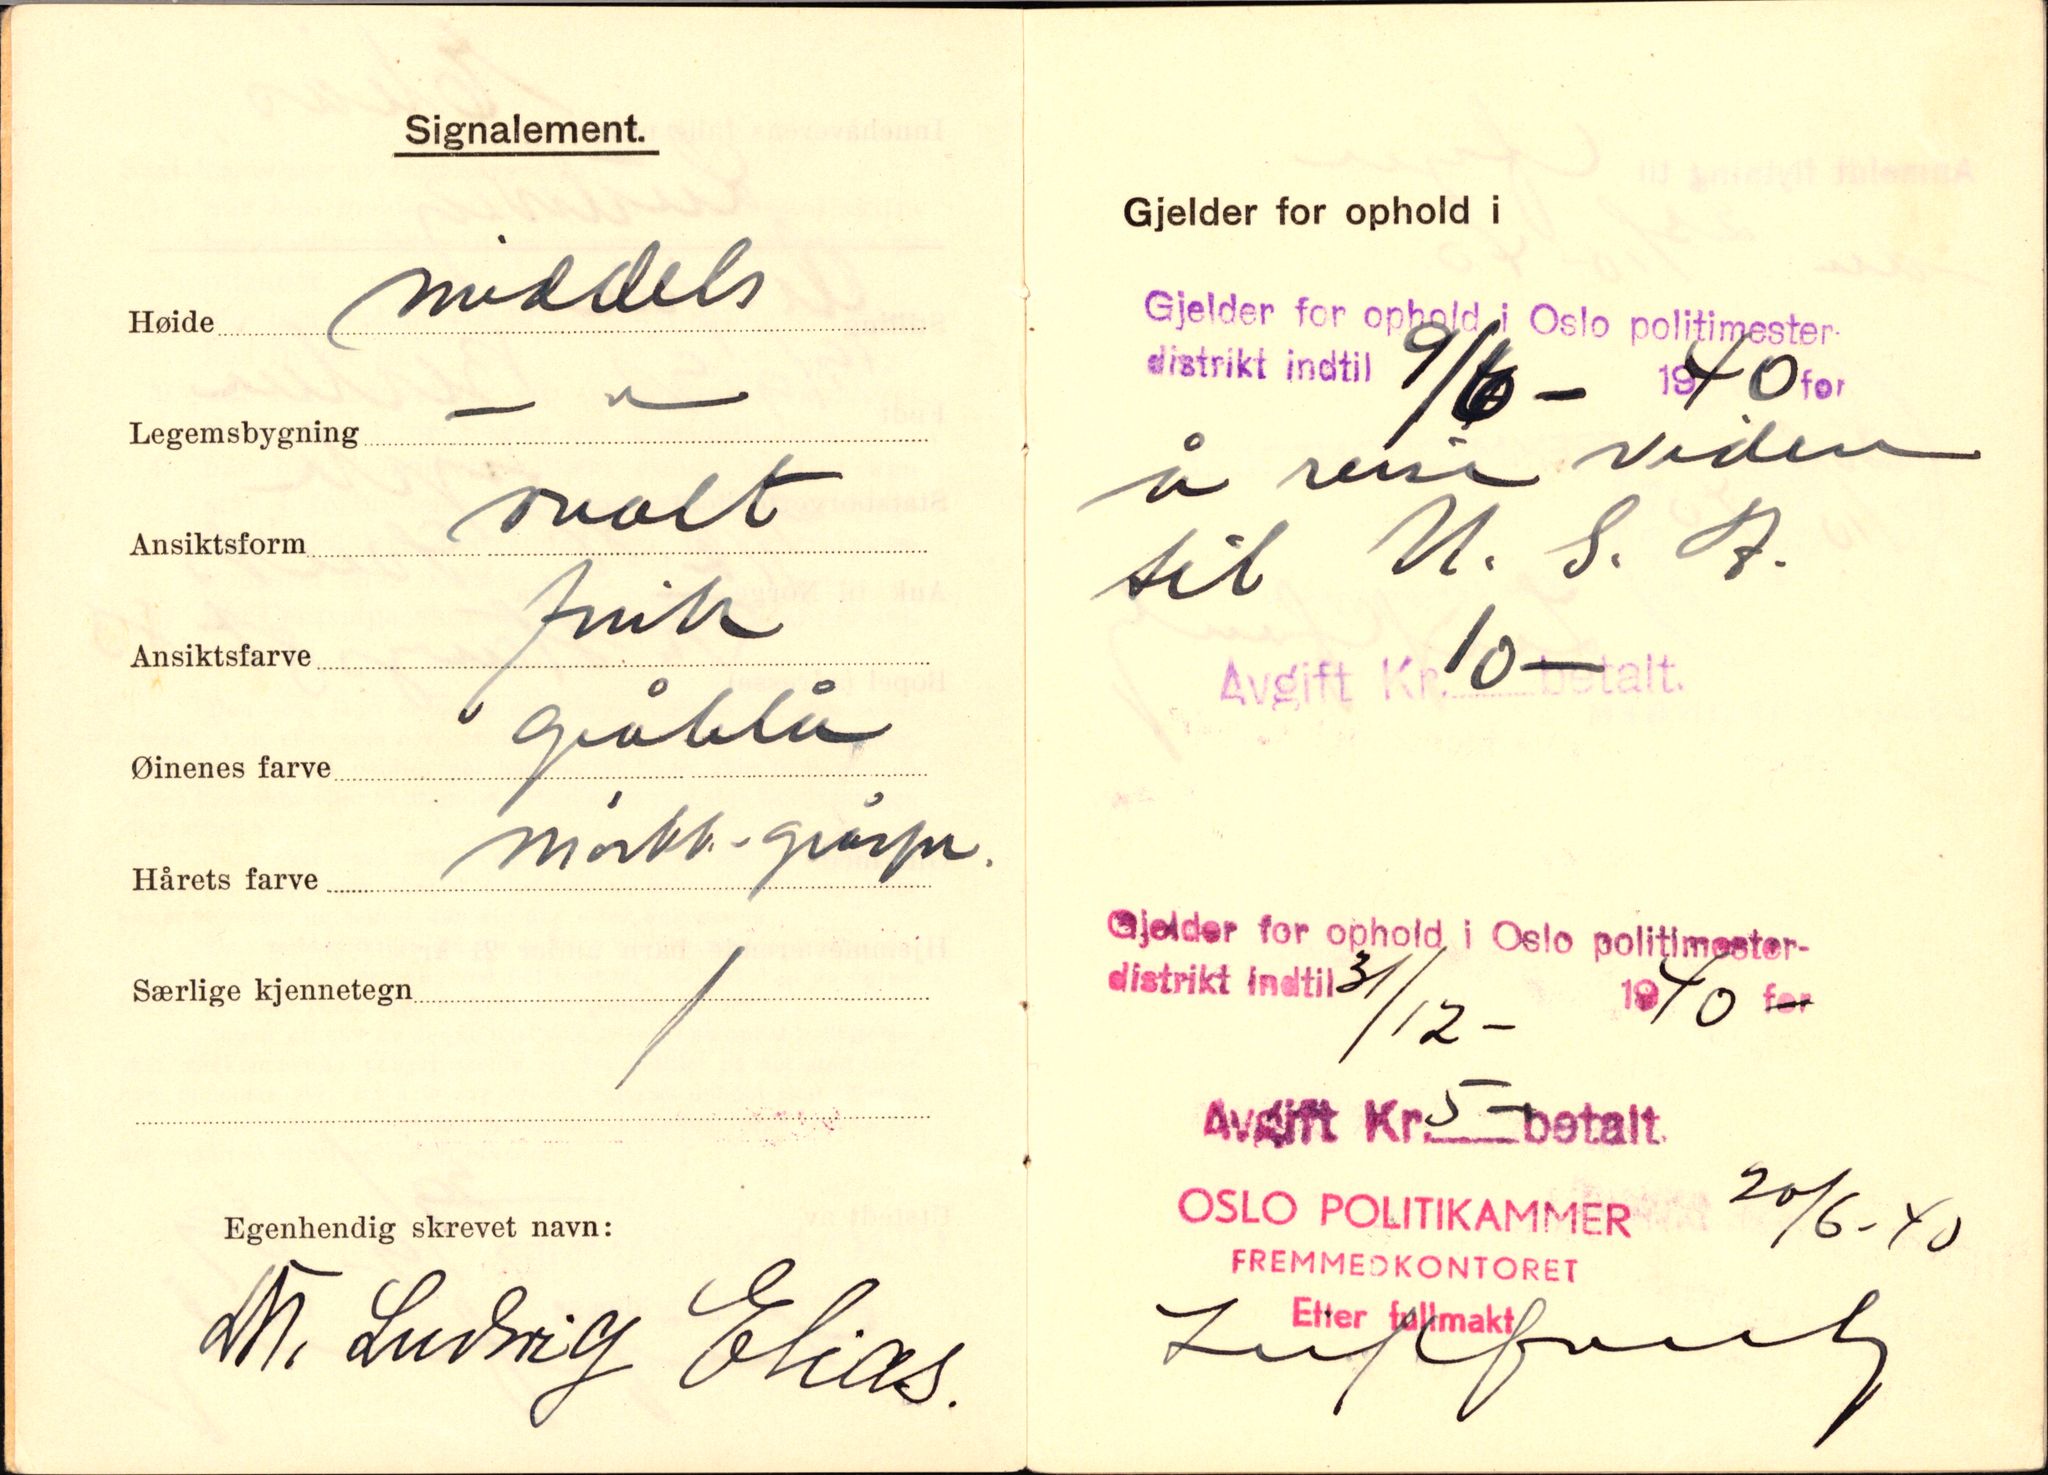 Signalement.
Høide middels
Legemsbygning — " —
Ansiktsform ovalt
Ansiktsfarve frisk
Øinenes farve gråblå
Hårets farve mørkk.-gråspr.
Særlige kjennetegn /
Egenhendig skrevet navn:
Ludwig Elias.
Gjelder for ophold i
Gjelder for ophold i Oslo politimester-
distrikt indtil 9/6 - 1940 for
å reise videre
til U. S. A.
Avgift Kr. 10— betalt.
Gjelder for ophold i Oslo politimester-
distrikt indtil 31/12 - 1940 for
Avgift Kr. 5- betalt.
OSLO POLITIKAMMER 20/6-40
FREMMEDKONTORET
Etter fullmakt